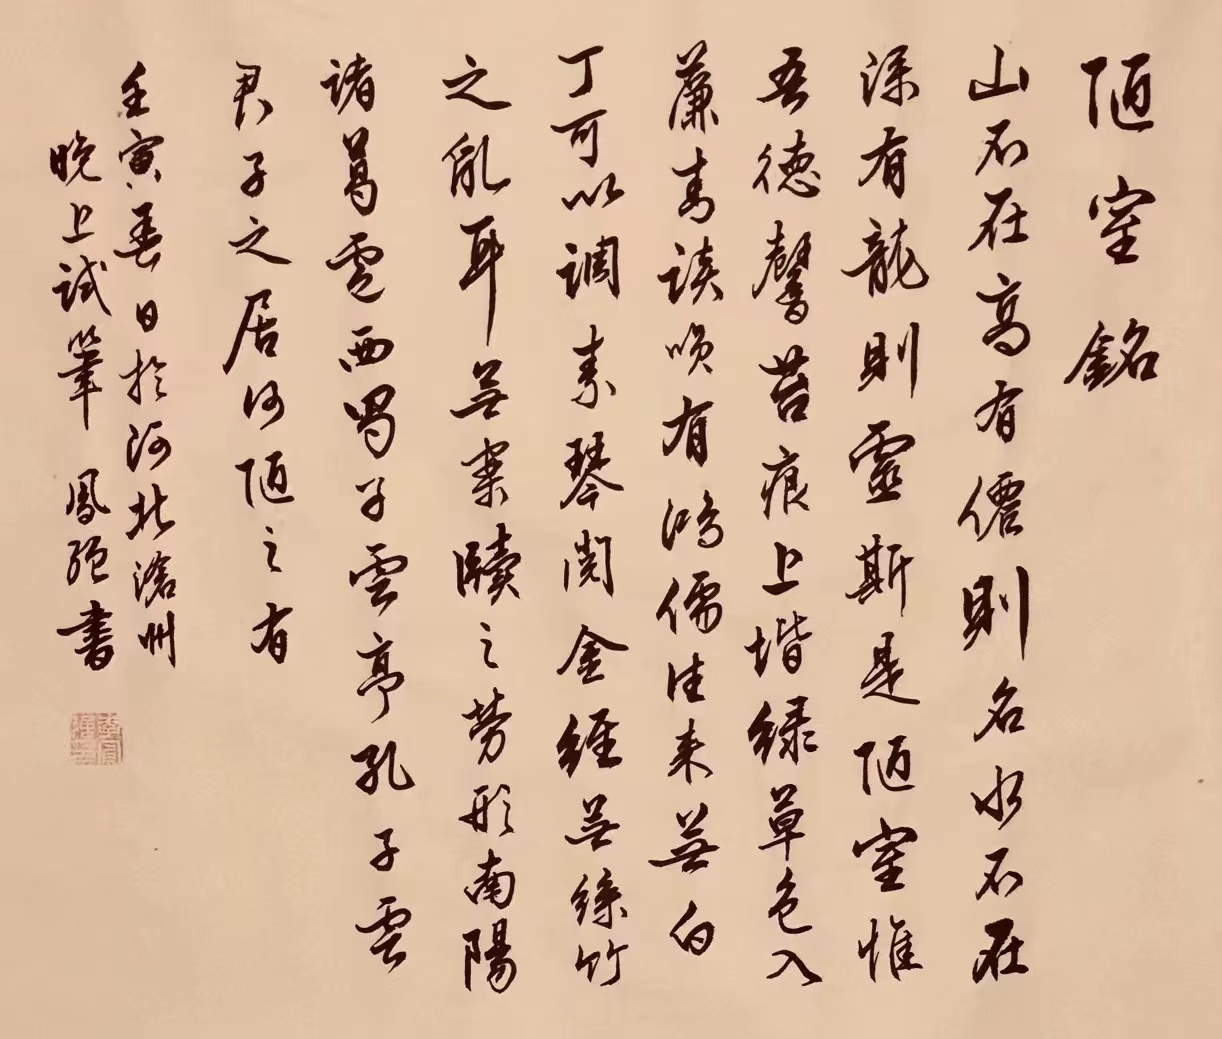 陋室銘
山不在高有僊則名水不在
深有龍則靈斯是陋室惟
吾德馨苔痕上堦緑草色入
簾青談唉有鴻儒往来無白
丁可以調素琴閱金經無絲竹
之亂耳無案牘之勞形南陽
諸葛廬西蜀子雲亭孔子雲
君子之居何陋之有
壬寅春日於河北滄州
晚上試筆 鳳強書